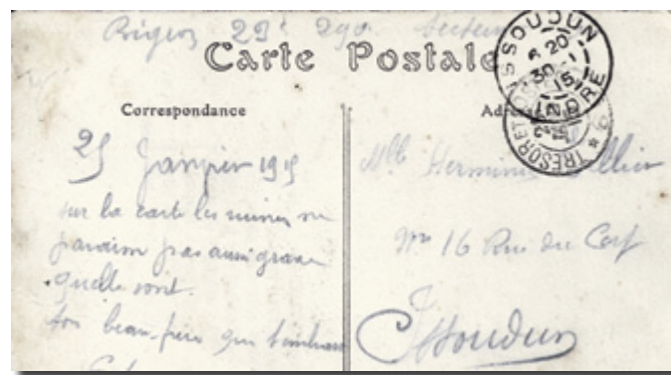 29e
Carte Postale
ISSOUDUN
6 20
30 -1
15
INDRE
TRESOR ET
Correspondance
25 Janvier 1915
sur la carte les ruines ne
paraisse pas aussi grave
quelle sont.
ton beau-père qui t'embrasse
Mlle Hermine
No 16 Rue du Cerf
Issoudun